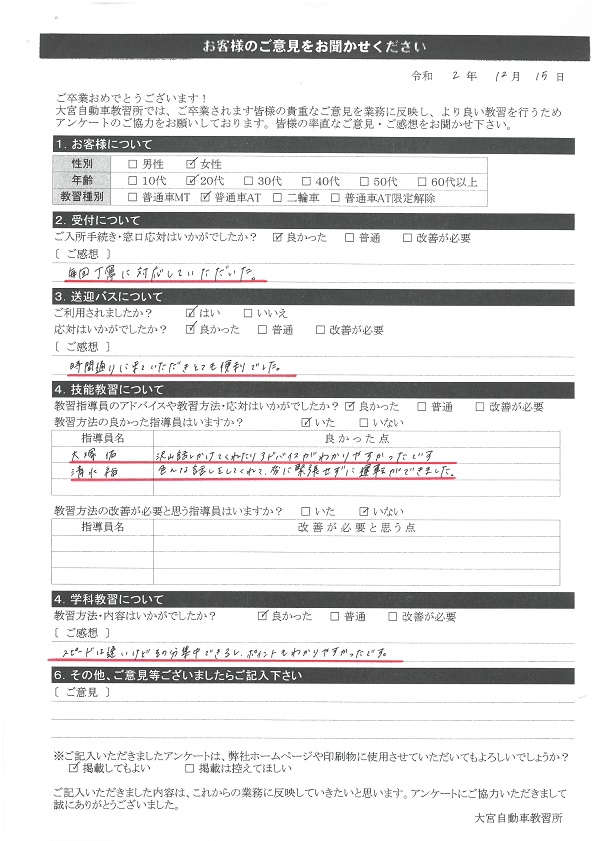 お客様のご意見をお聞かせください
令和 2 年 12 月 15 日
ご卒業おめでとうございます！
大宮自動車教習所では、ご卒業されます皆様の貴重なご意見を業務に反映し、より良い教習を行うため
アンケートのご協力をお願いしております。皆様の率直なご意見・ご感想をお聞かせ下さい。
1. お客様について
性別 □ 男性 ☑ 女性
年齢 □ 10代 ☑ 20代 □ 30代 □ 40代 □ 50代 □ 60代以上
教習種別 □ 普通車MT ☑ 普通車AT □ 二輪車 □ 普通車AT限定解除
2. 受付について
ご入所手続き・窓口応対はいかがでしたか? ☑ 良かった □ 普通 □ 改善が必要
〔 ご感想 〕
毎回丁寧に対応していただいた。
3. 送迎バスについて
ご利用されましたか? ☑ はい □ いいえ
応対はいかがでしたか? ☑ 良かった □ 普通 □ 改善が必要
〔 ご感想 〕
時間通りに来ていただきとても便利でした。
4. 技能教習について
教習指導員のアドバイスや教習方法・応対はいかがでしたか? ☑ 良かった □ 普通 □ 改善が必要
教習方法の良かった指導員はいますか? ☑ いた □ いない
指導員名 良かった点
大塚 沢山話しかけてくれたりアドバイスがわかりやすかったです
清水 色んな話しをしてくれて、常に緊張せずに運転ができました。
教習方法の改善が必要と思う指導員はいますか? □ いた ☑ いない
指導員名 改善が必要と思う点
4. 学科教習について
教習方法・内容はいかがでしたか? ☑ 良かった □ 普通 □ 改善が必要
〔 ご感想 〕
スピードは速いけどその分集中できるし、ポイントもわかりやすかったです。
6. その他、ご意見等ございましたらご記入下さい
〔 ご意見 〕
※ご記入いただきましたアンケートは、弊社ホームページや印刷物に使用させていただいてもよろしいでしょうか?
☑ 掲載してもよい □ 掲載は控えてほしい
ご記入いただきました内容は、これからの業務に反映していきたいと思います。アンケートにご協力いただきまして
誠にありがとうございました。
大宮自動車教習所